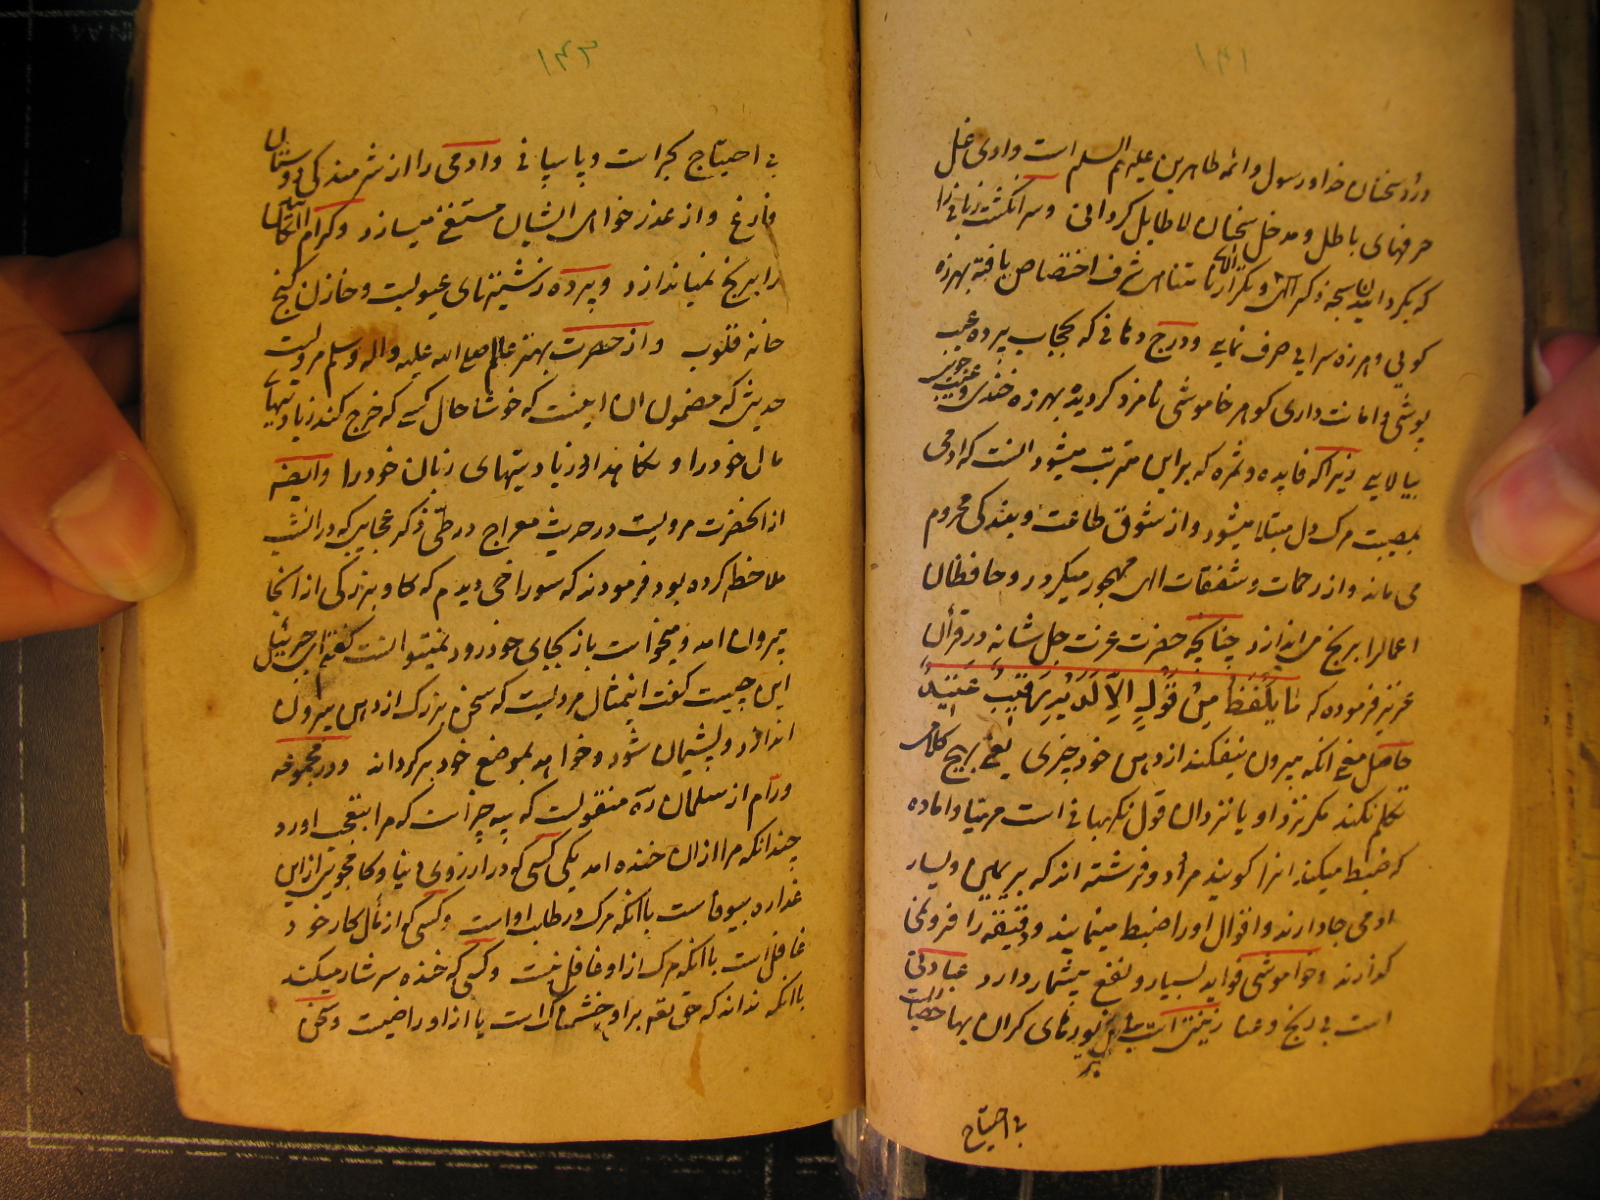 ۱۴۱
در رد سخنان خدا و رسول و ائمه طاهرین علیهم السلم است وادی غل
حرفهای باطل و مدخل سخنان لا طایل کردانی و سر انکشت زبانی را
که بکردانیدن سبحه ذکر الهی و تکرار نامتناهی شرف اختصاص یافته بهرزه
کویی و هرزه سرایی صرف نمایی و درج دهانی که بحجاب پرده عیب
پوشی و امانت داری کوهر خاموشی نامزد کردیده بهرزه خندی و غیبت
بیالایی زیرا که فایده و ثمره که بر این مترتب میشود انست که ادمی
بمصیبت مرک دل مبتلا میشود و از شوق طاعت و بندکی محروم
می ماند و از رحمات و شفقات الهی مهجور میکردد و حافظان
اعمال را برنج می اندازد چنانچه حضرت عزت جل شانه در قرآن
عزیز فرموده که مَا یَلْفَظُ مِنْ قَوْلٍ اِلَّا لَدَیْهِ رَقِیبٌ عَتِیدٌ
حاصل معنی انکه بیرون نیفکند از دهن خود چیزی یعنی بهیچ کلامی
تکلم نکند مکر نزد او یا نزد ان قول نکهبانی است مهیا و اماده
که ضبط میکند انرا کویند مراد دو فرشته اند که بر یمین و یسار
ادمی جا دارند و اقوال او را ضبط مینمایند و دقیقه را فرو نمی
کذارند و خاموشی فواید بسیار و نفع بیشمار دارد عبادتی
است بی رنج و عنا زینتی است بی زیورهای کران بها حصاریست
بی احتیاج
۱۴۲
بی احتیاج بحراست و پاسبانی و ادمی را از شرمندکی دوستان
فارغ و از عذر خواهی ایشان مستغنی میسازد و کرام الکاتبین
را برنج نمیاندازد و پرده نشینهای عیوبست و خازن کنج
خانه قلوب و از حضرت بهتر عالم صلی الله علیه واله وسلم مرویست
حدیثی که مضمون ان اینست که خوشا حال کسی که خرج کند زیادتیهای
مال خود را و نکاهدارد زیادیتهای زبان خود را و ایضه
از انحضرت مرویست در حدیث معراج در طی ذکر عجایبی که در انشب
ملاحظه کرده بود فرمودند که سوراخی دیدم که کاو بزرکی از انجا
بیرون امد و میخواست باز بجای خود رود نمیتوانست کفتم ای جبرئیل
این چیست کفت اینمثال مردیست که سخن بزرک از دهن بیرون
اندازد و پشیمان شود و خواهد بموضع خود برکرداند و در مجموعه
ورّام از سلمان ره منقولست که سه چیز است که مرا بتعجب اورد
چندانکه مرا ازان خنده امد یکی کسی که در ارزوی دنیا و کامجویی از این
غداره بیوفاست با انکه مرک در طلب او است و کسی که از مآل کار خود
غافل است با انکه مرک از او غافل نیست و کسی که خنده سرشار میکند
با انکه نداند که حق تعه بر او خشمناک است یا از او راضیست و سخن